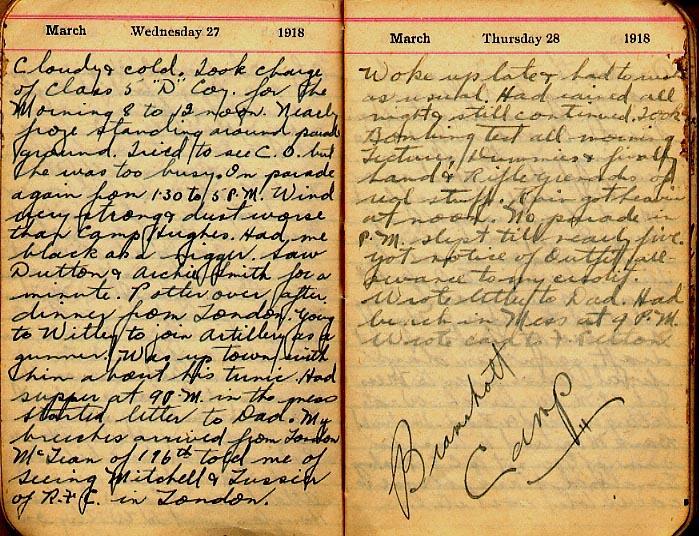 March Wednesday 27 1918
Cloudy & cold. Took charge
of Class 5 "D" Coy. for the
Morning 8 to 12 noon. Nearly
froze standing around parade
ground. Tried to see C.O. but
he was too busy. On parade
again from 1.30 to 5 P.M. Wind
very strong & dust worse
than Camp Hughes. Had me
black as a nigger. Saw
Dutton & Archie Smith for a
minute. Potter over after
dinner from London. Going
to Witley to join Artillery as a
gunner. Was up town with
him about his tunic. Had
supper at 9 P.M. in the mess
started letter to Dad. My
breeches arrived from London
McLean of 196th told me of
seeing Mitchell & Tussier
of R.F.C. in London.
March Thursday 28 1918
Woke up late & had to rush
as usual. Had rained all
night & still continued. Took
Bombing test all morning
Lectures, Dummies & finally
hand & Rifle grenades of
real stuff. Rain got heavier
at noon. No parade in
P.M. slept till nearly five.
Got notice of Outfit all-
owance to my credit.
Wrote letter to Dad. Had
lunch in Mess at 9 P.M.
Wrote card to
Bramshott
Camp